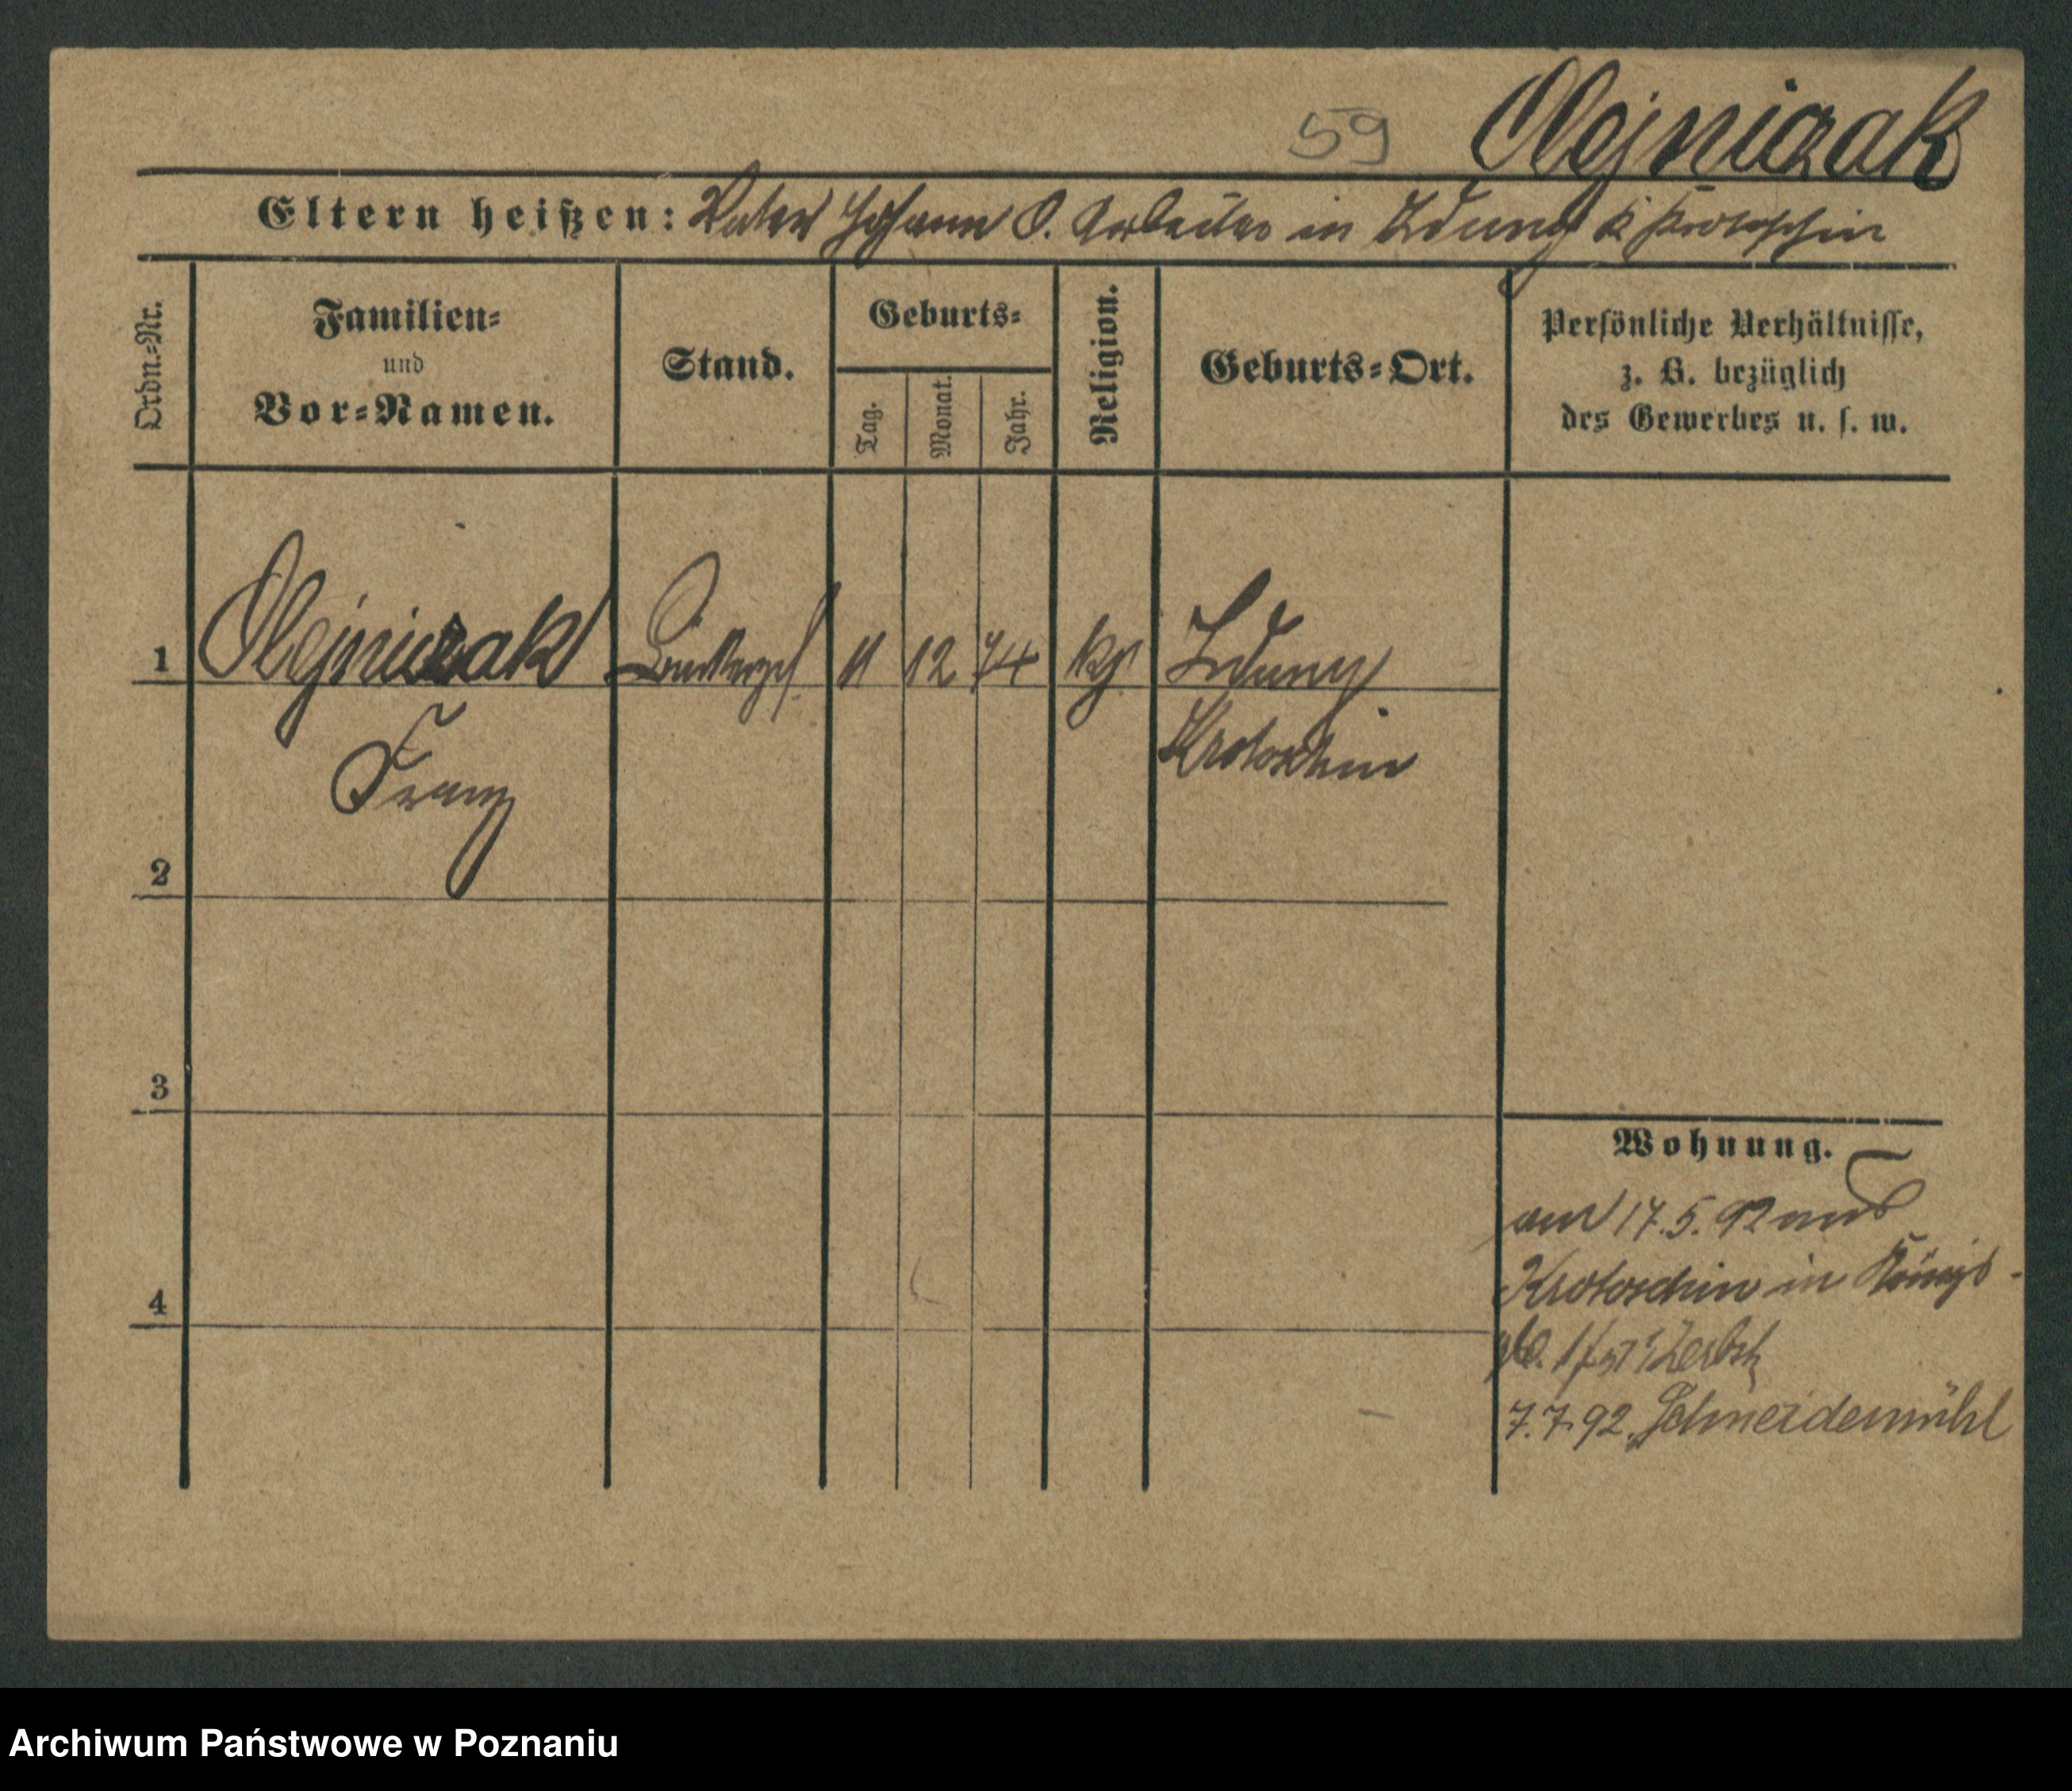 59 Olejniczak
Eltern heißen: Vater Johann O. Arbeiter in Zduny K. Krotoschin
Ordn.-Nr.
Familien-
und
Vor-Namen.
Stand.
Geburts-
Tag.
Monat.
Jahr.
Religion.
Geburts-Ort.
Persönliche Verhältnisse,
z. B. bezüglich
des Gewerbes u. s. w.
1 Olejniczak 11 12 74 Zduny
Franz Krotoschin
2
3
4
Wohnung.
am 17.5.92 aus
Krotoschin in Königs-
7.7.92 Schneidemühl
Archiwum Państwowe w Poznaniu